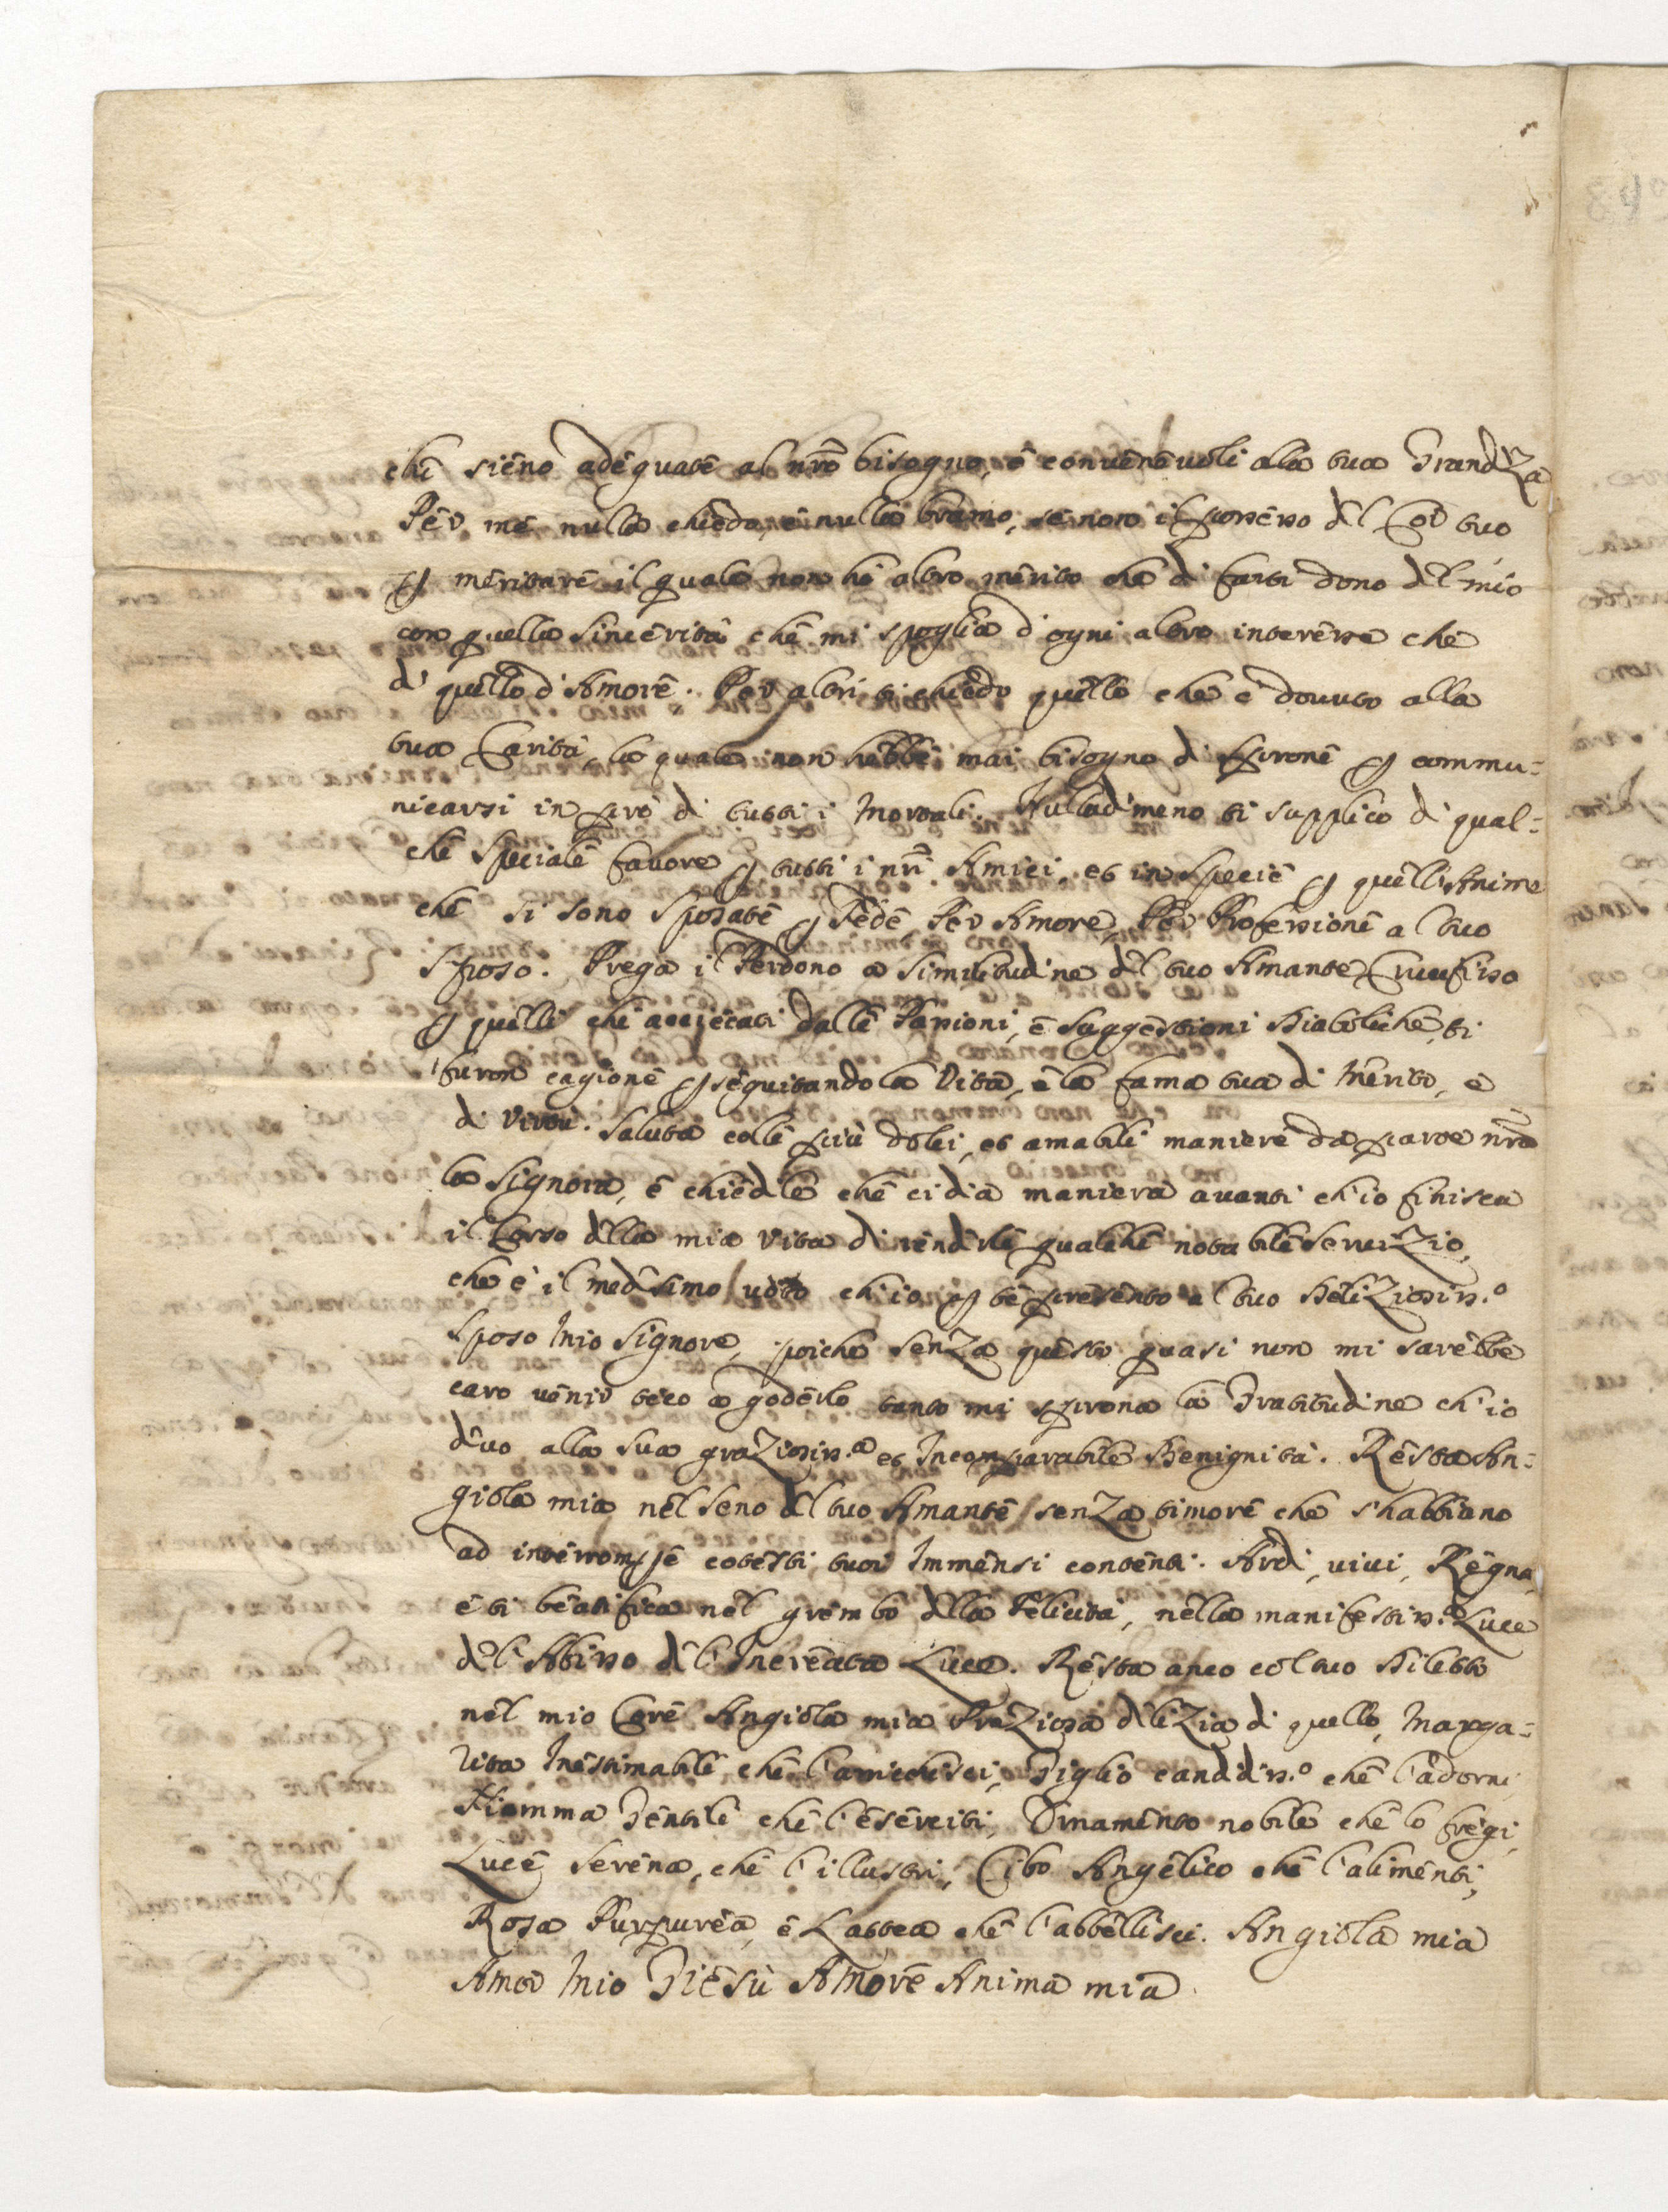 che siéno adéguaté al nr̃o bisogno, é convénévoli alla tua Grandéza
Pér mé nulla chiédo, é nulla bramo, sé non il possésso dél Cor tuo
p méritaré il quale non hó altro mérito ché di farti dono dél mio
con quella sincérità ché mi spoglia d'ogni altro intérésse che
di quéllo d'Amoré. Per altri ti chiédo quéllo che è douuto alla
tua Carità, la quale non hébbé mai bisogno di sproné p commu=
nicarsi in prò di tutti i Mortali. Nulladimeno ti supplico di qual=
ché spécialé fauore p tutti i nr̃i Amici, et in spécié p quéll'Anime
ché si sono sposaté p Fédé, Pér Amore, Pér Proféssioné al tuo
Sposo. Préga il Pérdono a similitudine dél tuo Amante Crucifisso
p quélli ché acciécati dallé Passioni, é suggéstioni Diaboliché, ti
furon cagioné pséguitando la Vita, é la fama tua di Mérito, e
di Virtù. Saluta collé più dolci, et amabili maniere da parte nr̃a
la Signora, é chiédilé ché ci dia maniéra auanti ch'io finisca
il Corso délla mia Vita di réndérlé qualché notabilé Seruizio,
che è il médésimo uóto ch'io p té présénto al tuo Déliziosiss.º
Sposo Mio Signore, poiche senza quésto quasi non mi sarébbe
caro uénir téco a godérlo tanto mi sprona la Gratitudine ch'io
déuo alla sua graziosiss.ª et Incomparabilé Bénignità. Résta An=
giola mia nél séno dél tuo Amanté senza timoré che s'habbiano
ad intérrompéré cotésti tuoi Imménsi conténti. Ardi, uiui, Régna,
é ti béatifica nél grémbo délla Félicità, nélla manifestiss.ª Luce
dél'Abisso dél'Increáta Luce. Résta anco col tuo Dilétto
nél mio Coré Angióla mia Préziosa délizia di quello, Marga=
rita Inéstimabilé ché l'arricchisci, Giglio candidiss.º ché l'adorni
Fiamma Géntilé ché l'ésérciti, Ornaménto nobilé ché lo frégi,
Lucé Seréna, ché l'illustri, Cibo Angélico ché l'aliménti,
Rosa Purpuréa, é Lattea ché l'abbéllisci. Angiola mia
Amor Mio Giésù Amoré Anima mia.